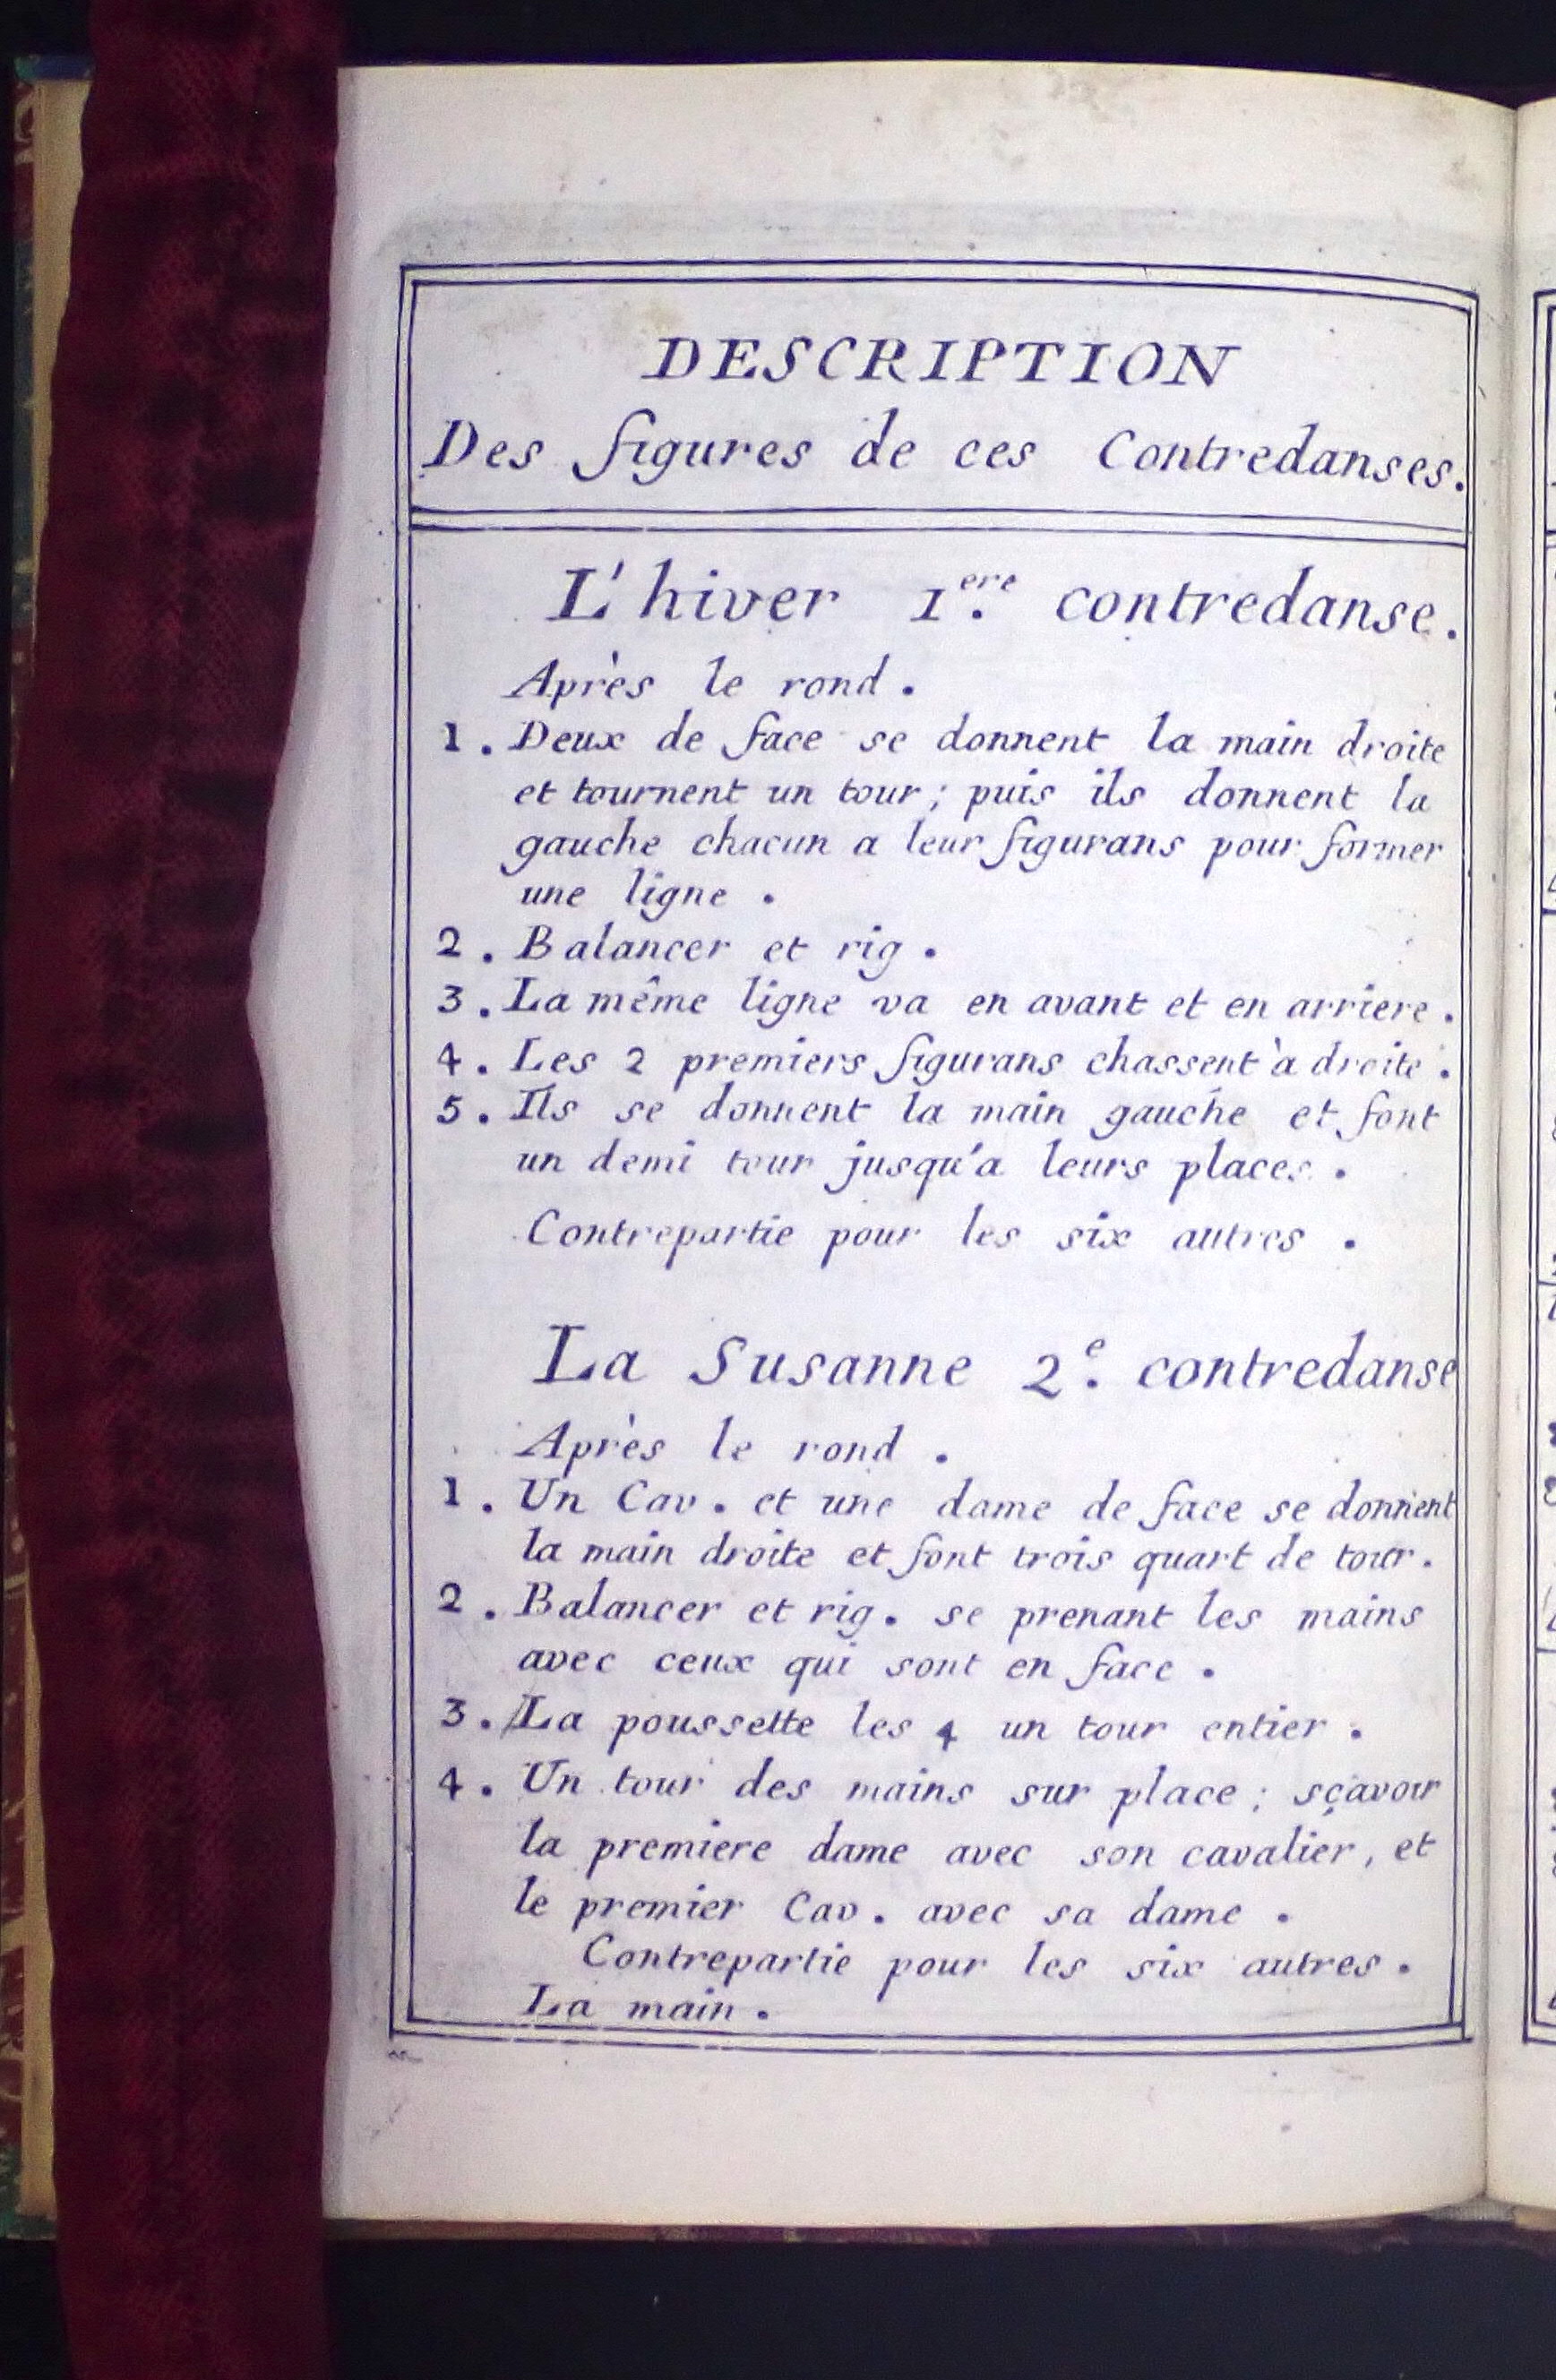 DESCRIPTION
Des figures de ces Contredanses.
L'hiver 1.ere contredanse.
Après le rond.
1. Deux de face se donnent la main droite
et tournent un tour; puis ils donnent la
gauche chacun a leur figurans pour former
une ligne.
2. Balancer et rig.
3. La même ligne va en avant et en arriere.
4. Les 2 premiers figurans chassent à droite.
5. Ils se donnent la main gauche et font
un demi tour jusqu'a leurs places.
Contrepartie pour les six autres.
La Susanne 2.e contredanse
Après le rond.
1. Un Cav. et une dame de face se donnent
la main droite et font trois quart de tour.
2. Balancer et rig. se prenant les mains
avec ceux qui sont en face.
3. La poussette les 4 un tour entier.
4. Un tour des mains sur place; sçavoir
la premiere dame avec son cavalier, et
le premier Cav. avec sa dame.
Contrepartie pour les six autres.
La main.